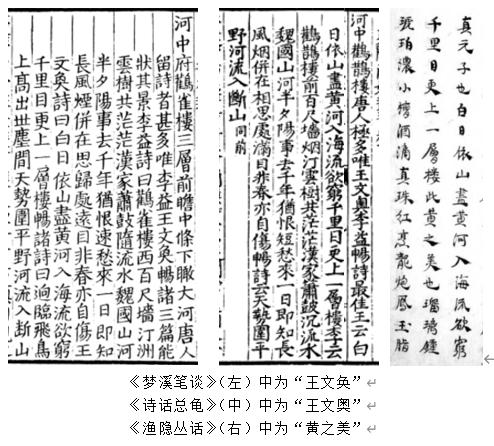 河中府鸛雀樓三層前瞻中條下瞰大河唐人
留詩者甚多唯李益王文奐暢諸三篇能
狀其景李益詩曰鸛雀樓西百尺墻汀洲
雲樹共茫茫漢家蕭鼓隨流水魏國山河
半夕陽事去千年猶恨速愁來一日即知
長風煙併在思歸處遠目非春亦自傷王
文奐詩曰白日依山盡黃河入海流欲窮
千里目更上一層樓暢諸詩曰迥臨飛鳥
上高出世塵間天勢圍平野河流入斷山
河中鸛鵲樓唐人極多唯王文奧李益暢詩最佳王云白
日依山盡黃河入海流欲窮千里目更上一層樓李云
鸛鵲樓前百尺墻烟汀雲樹共茫茫漢家蕭鼓沉流水
魏國山河半夕陽事去千年猶恨短愁來一日即知長
風烟併在相思處滿目非春亦自傷暢詩云天勢圍平
野河流入斷山 同前
真元子也白日依山盡黃河入海流欲窮
千里目更上一層樓此黃之美也瑠璃鍾
琥珀濃小槽酒滴真珠紅烹龍炮鳳玉脂
《梦溪笔谈》(左)中为“王文奂”
《诗话总龟》(中)中为“王文奥”
《渔隐丛话》(右)中为“黄之美”